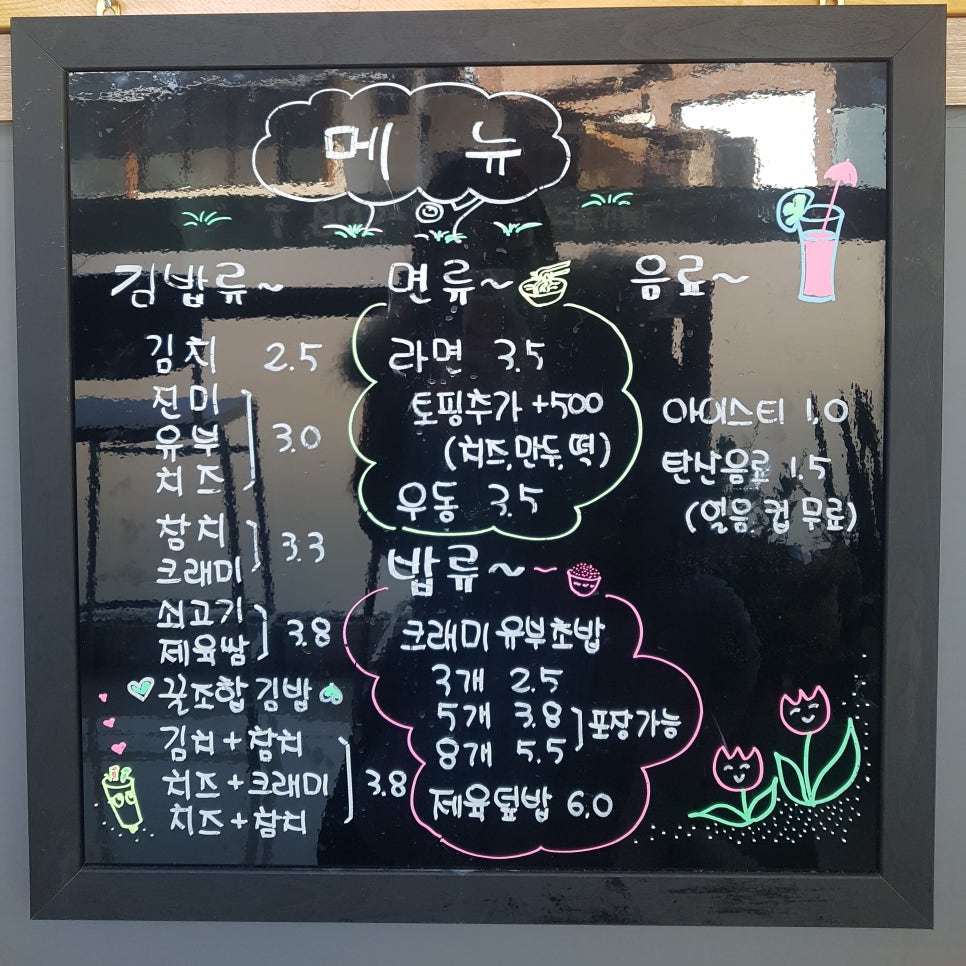 메 뉴
김밥류~
김치 2.5
진미
유부
치즈
3.0
참치
크래미
3.3
쇠고기
제육쌈
3.8
꿀조합 김밥
김치+참치
치즈+크래미
치즈+참치
3.8
면류~
라면 3.5
토핑추가 +500
(치즈, 만두, 떡)
우동 3.5
밥류~~
크래미 유부초밥
3개 2.5
5개 3.8
8개 5.5
포장가능
제육덮밥 6.0
음료~
아이스티 1.0
탄산음료 1.5
(얼음.컵 무료)